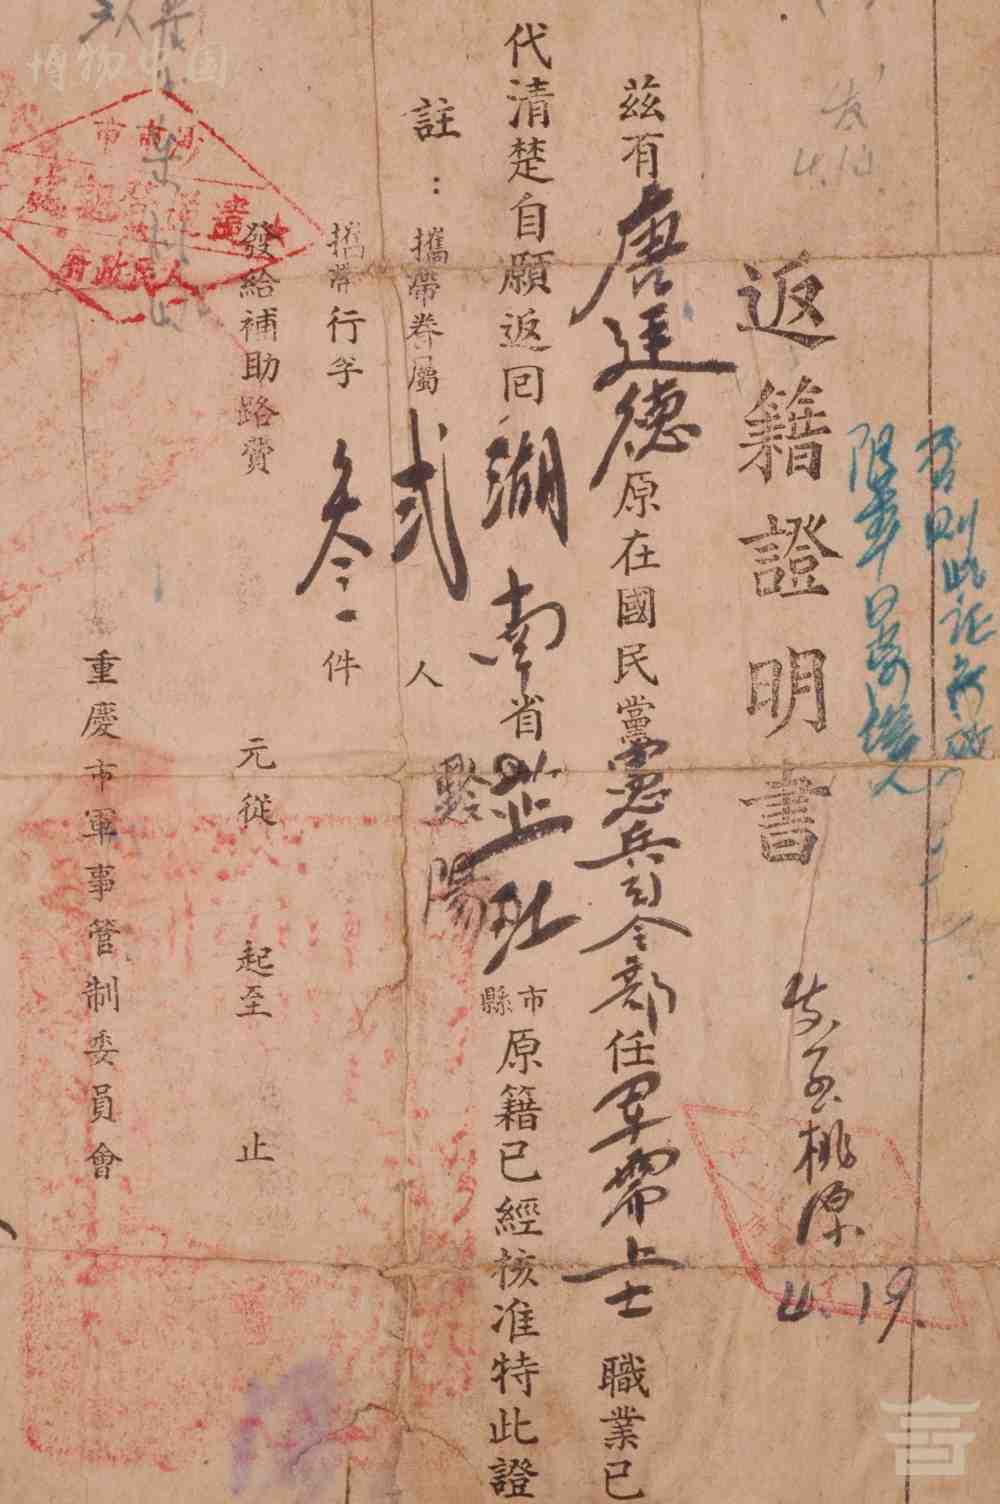 返籍證明書
茲有唐廷德原在國民黨憲兵司令部任軍需上士職業已
代清楚自願返回湖南省芷江市縣原籍已經核准特此證
黔陽
註：攜帶眷屬弍人
攜帶行李叁件
發給補助路費元從起至止
重慶市軍事管制委員會
桃源
4.19.
否則此证
人民政府
博物中国